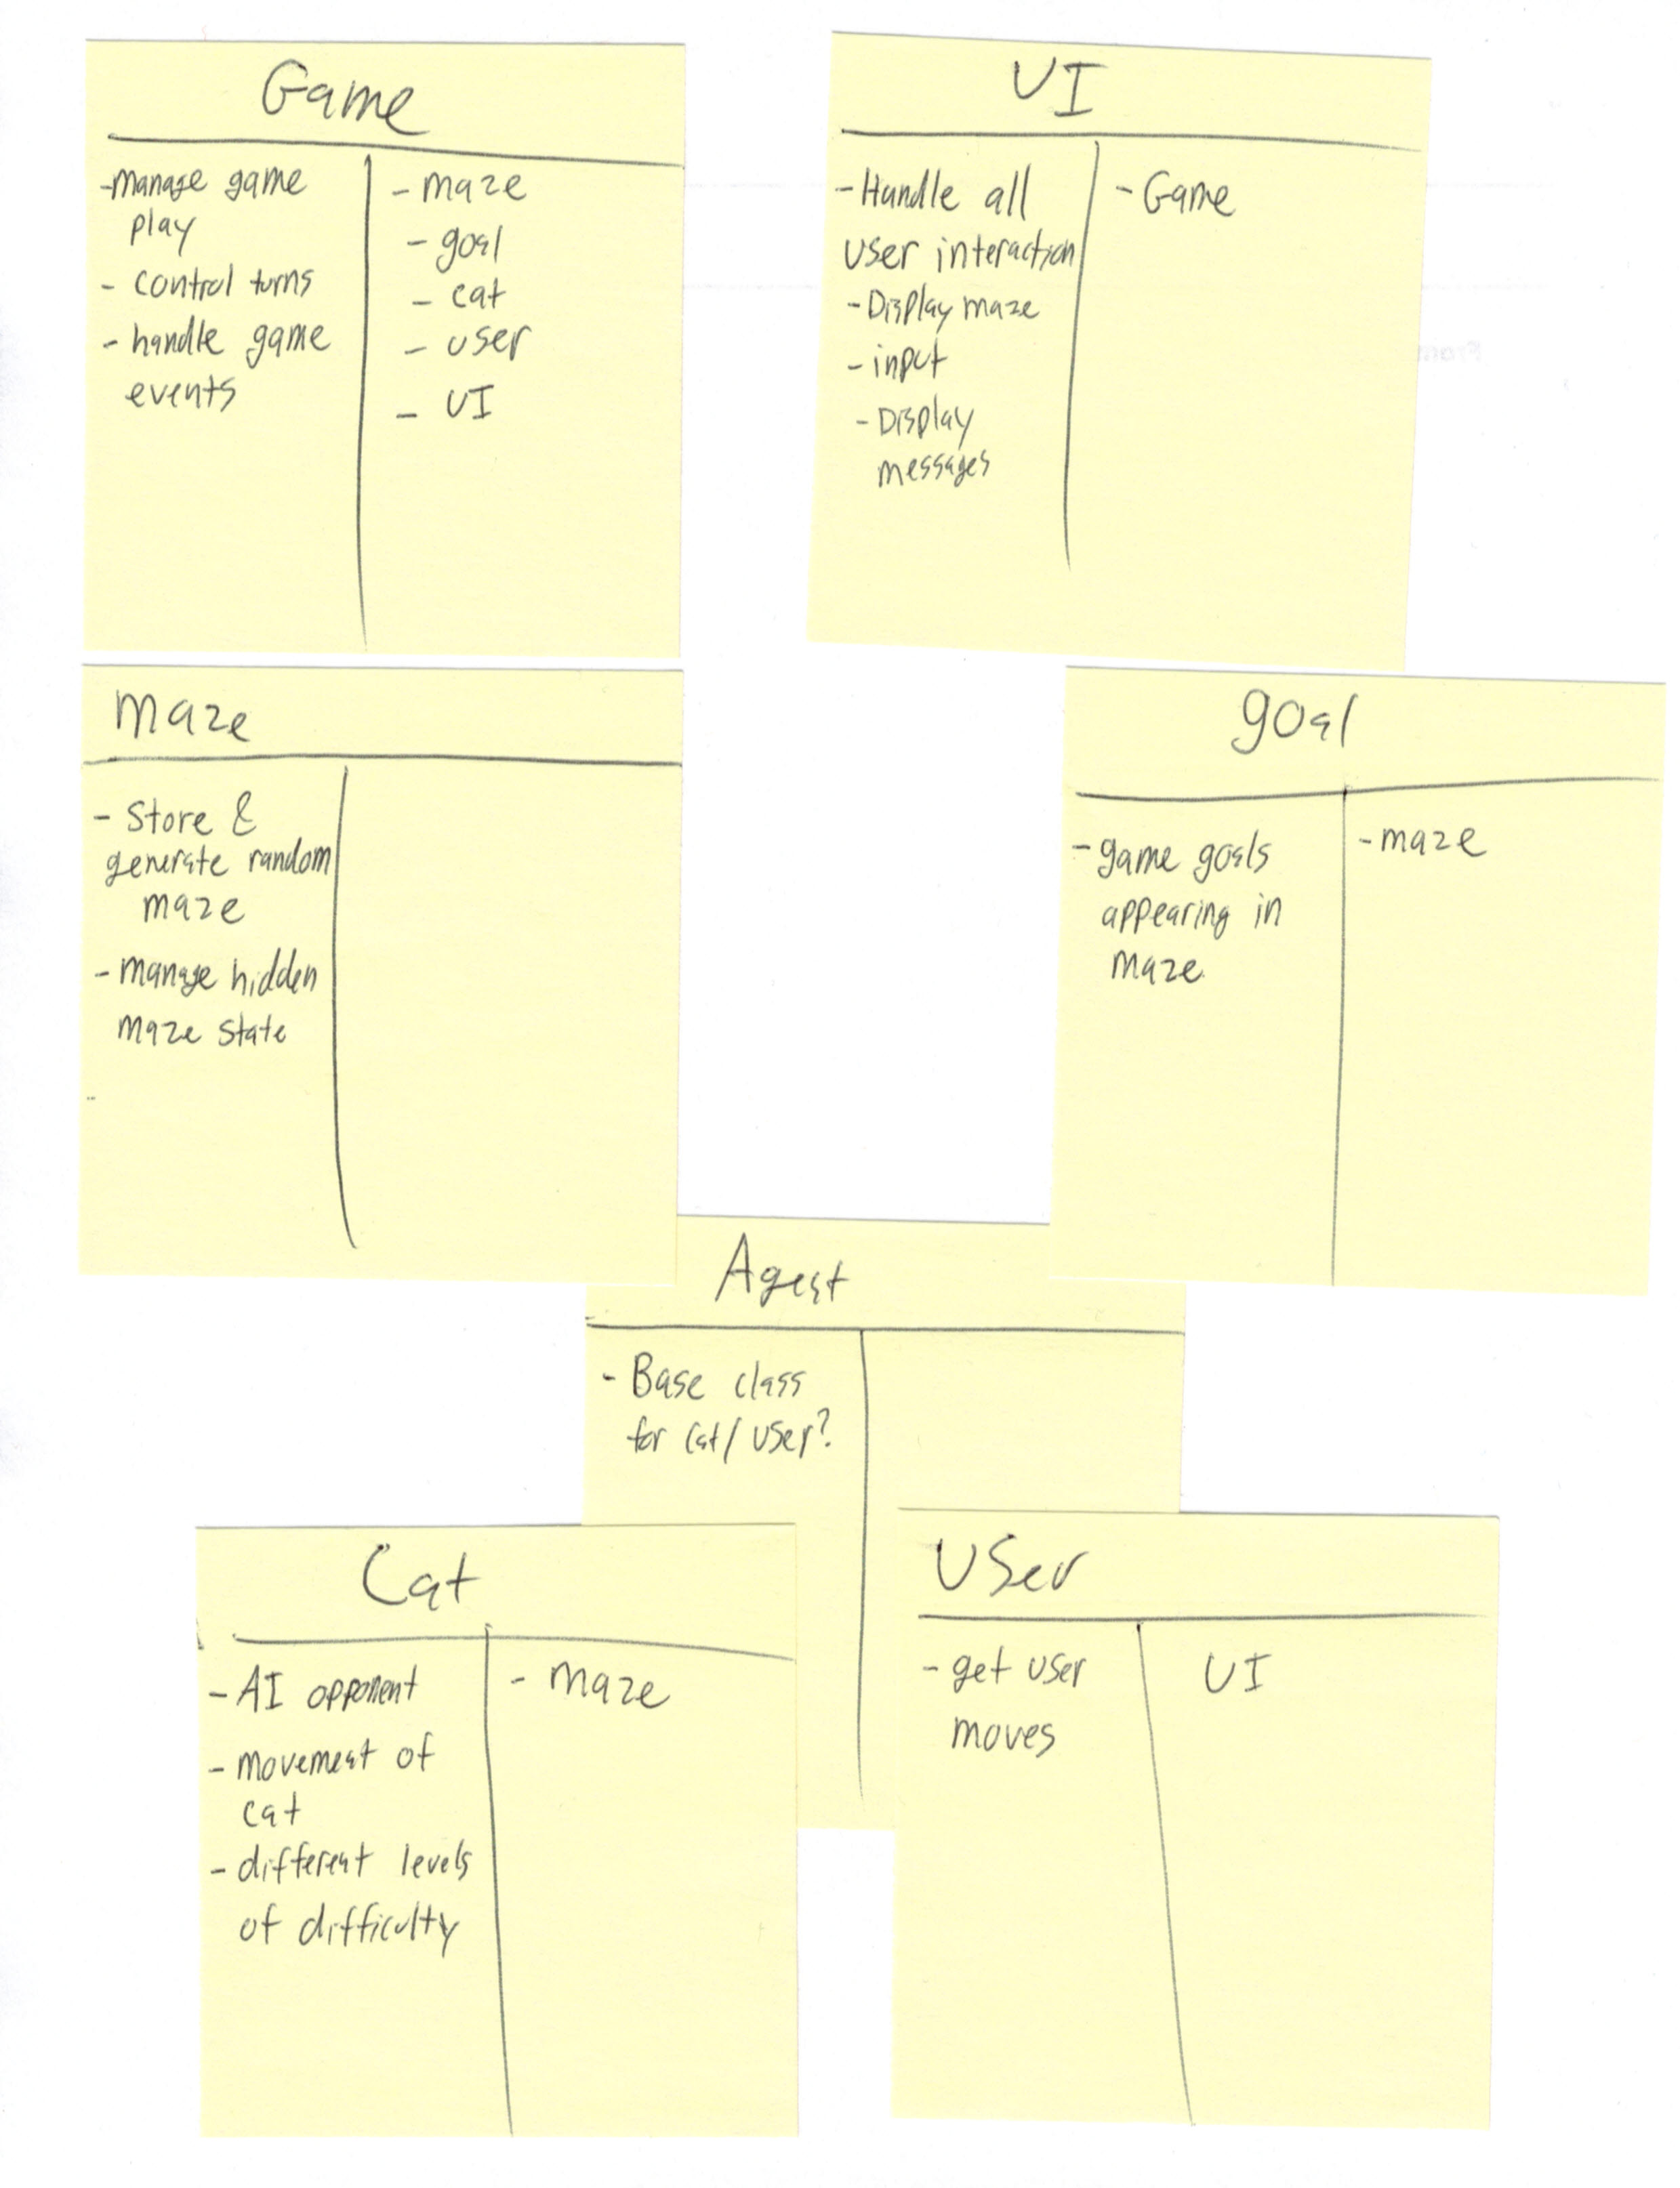 Game
-manage game
play
- control turns
- handle game
events
- maze
- goal
- cat
- user
- UI
UI
-Handle all
user interaction
-Display maze
-input
-Display
messages
- Game
maze
- Store &
generate random
maze
- manage hidden
maze state
goal
- game goals
appearing in
maze
- maze
Agent
- Base class
for Cat/User?
Cat
- AI opponent
- movement of
cat
- different levels
of difficulty
- maze
User
- get user
moves
UI